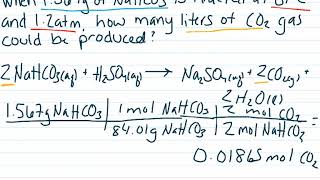 and 1.2atm, how many liters of CO₂ gas
could be produced?
2NaHCO₃(aq) + H₂SO₄(aq) → Na₂SO₄(aq) + 2CO₂(g) +
2H₂O(l)
1.567g NaHCO₃ | 1 mol NaHCO₃ | 2 mol CO₂ =
84.01g NaHCO₃ | 2 mol NaHCO₃
0.01865 mol CO₂